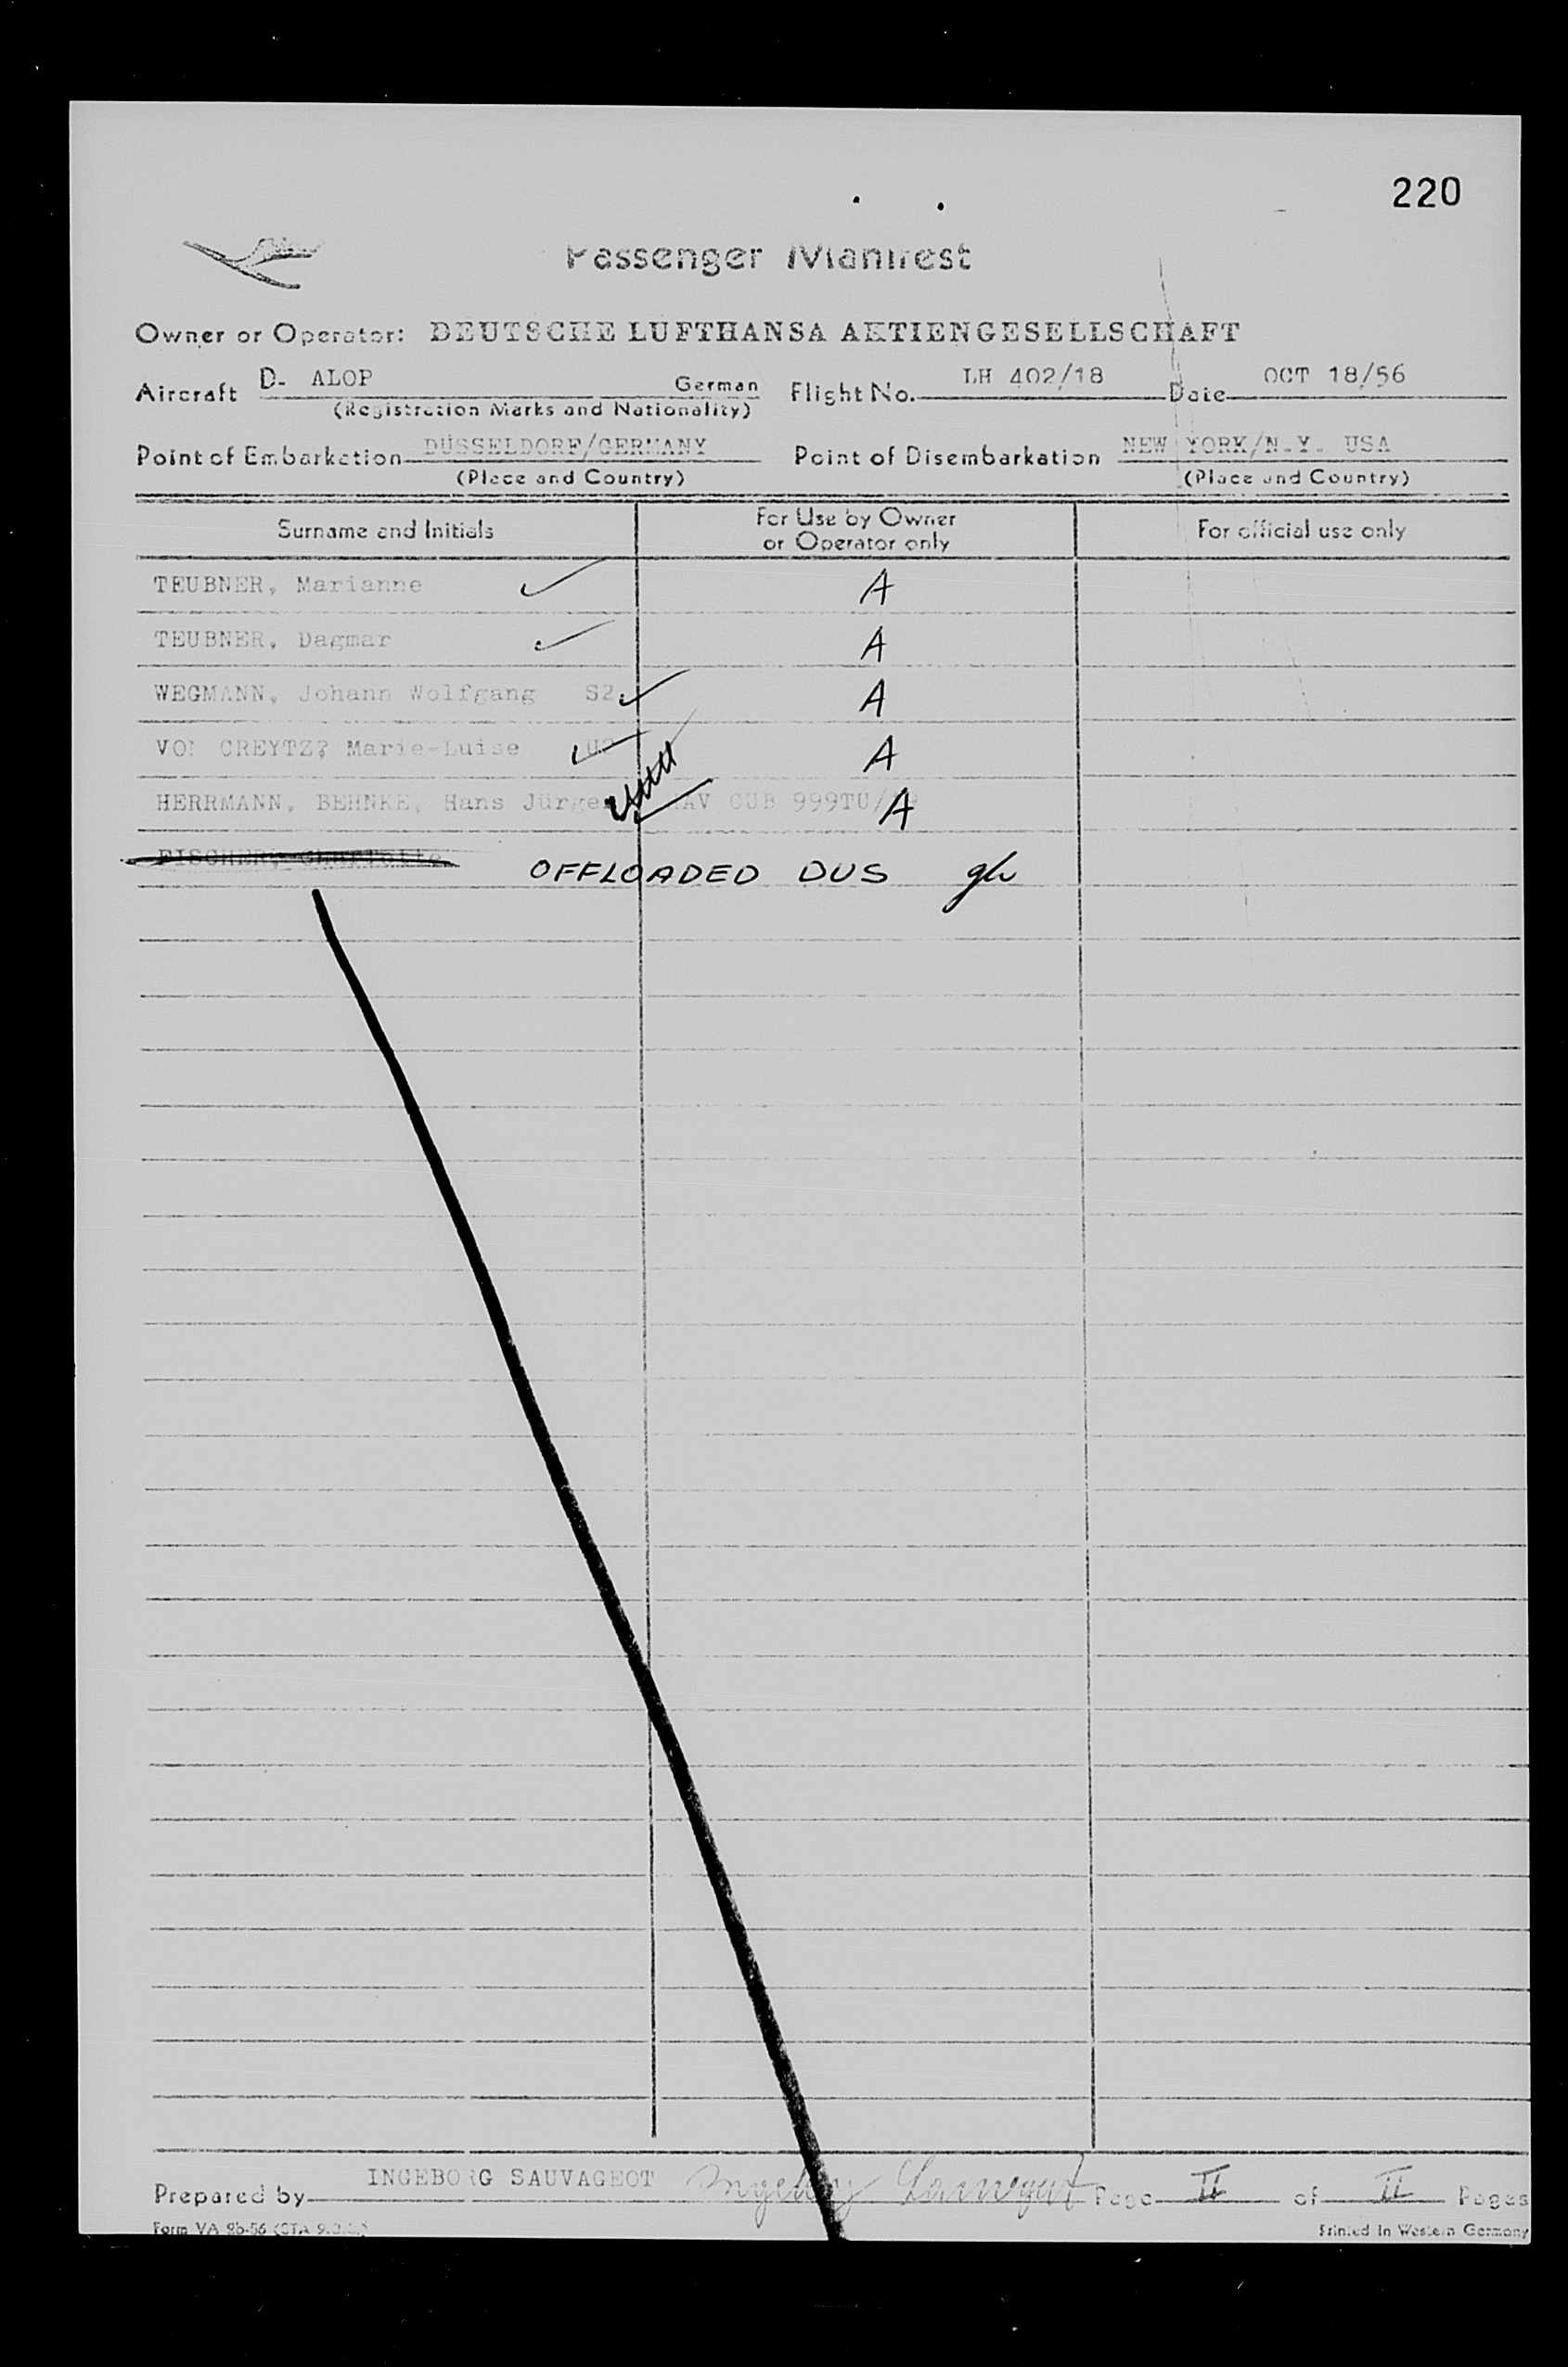 220
Passenger Manifest
Owner or Operator: DEUTSCHE LUFTHANSA AKTIENGESELLSCHAFT
Aircraft D- ALOP German Flight No. LH 402/18 Date OCT 18/56
(Registration Marks and Nationality)
Point of Embarkation DÜSSELDORF/GERMANY Point of Disembarkation NEW YORK/N.Y. USA
(Place and Country) (Place and Country)
Surname and Initials For Use by Owner or Operator only For official use only
TEUBNER, Marianne A
TEUBNER, Dagmar A
WEGMANN, Johann Wolfgang S2 A
VON CREYTZ? Marie-Luise A
HERRMANN, BEHNKE, Hans Jürgen CUB 999TU/ A
FISCHER, OFFLOADED DUS gh
Prepared by INGEBORG SAUVAGEOT Ingeborg Sauvageot Page II of II Pages
Form VA 8b-56 Printed in Western Germany